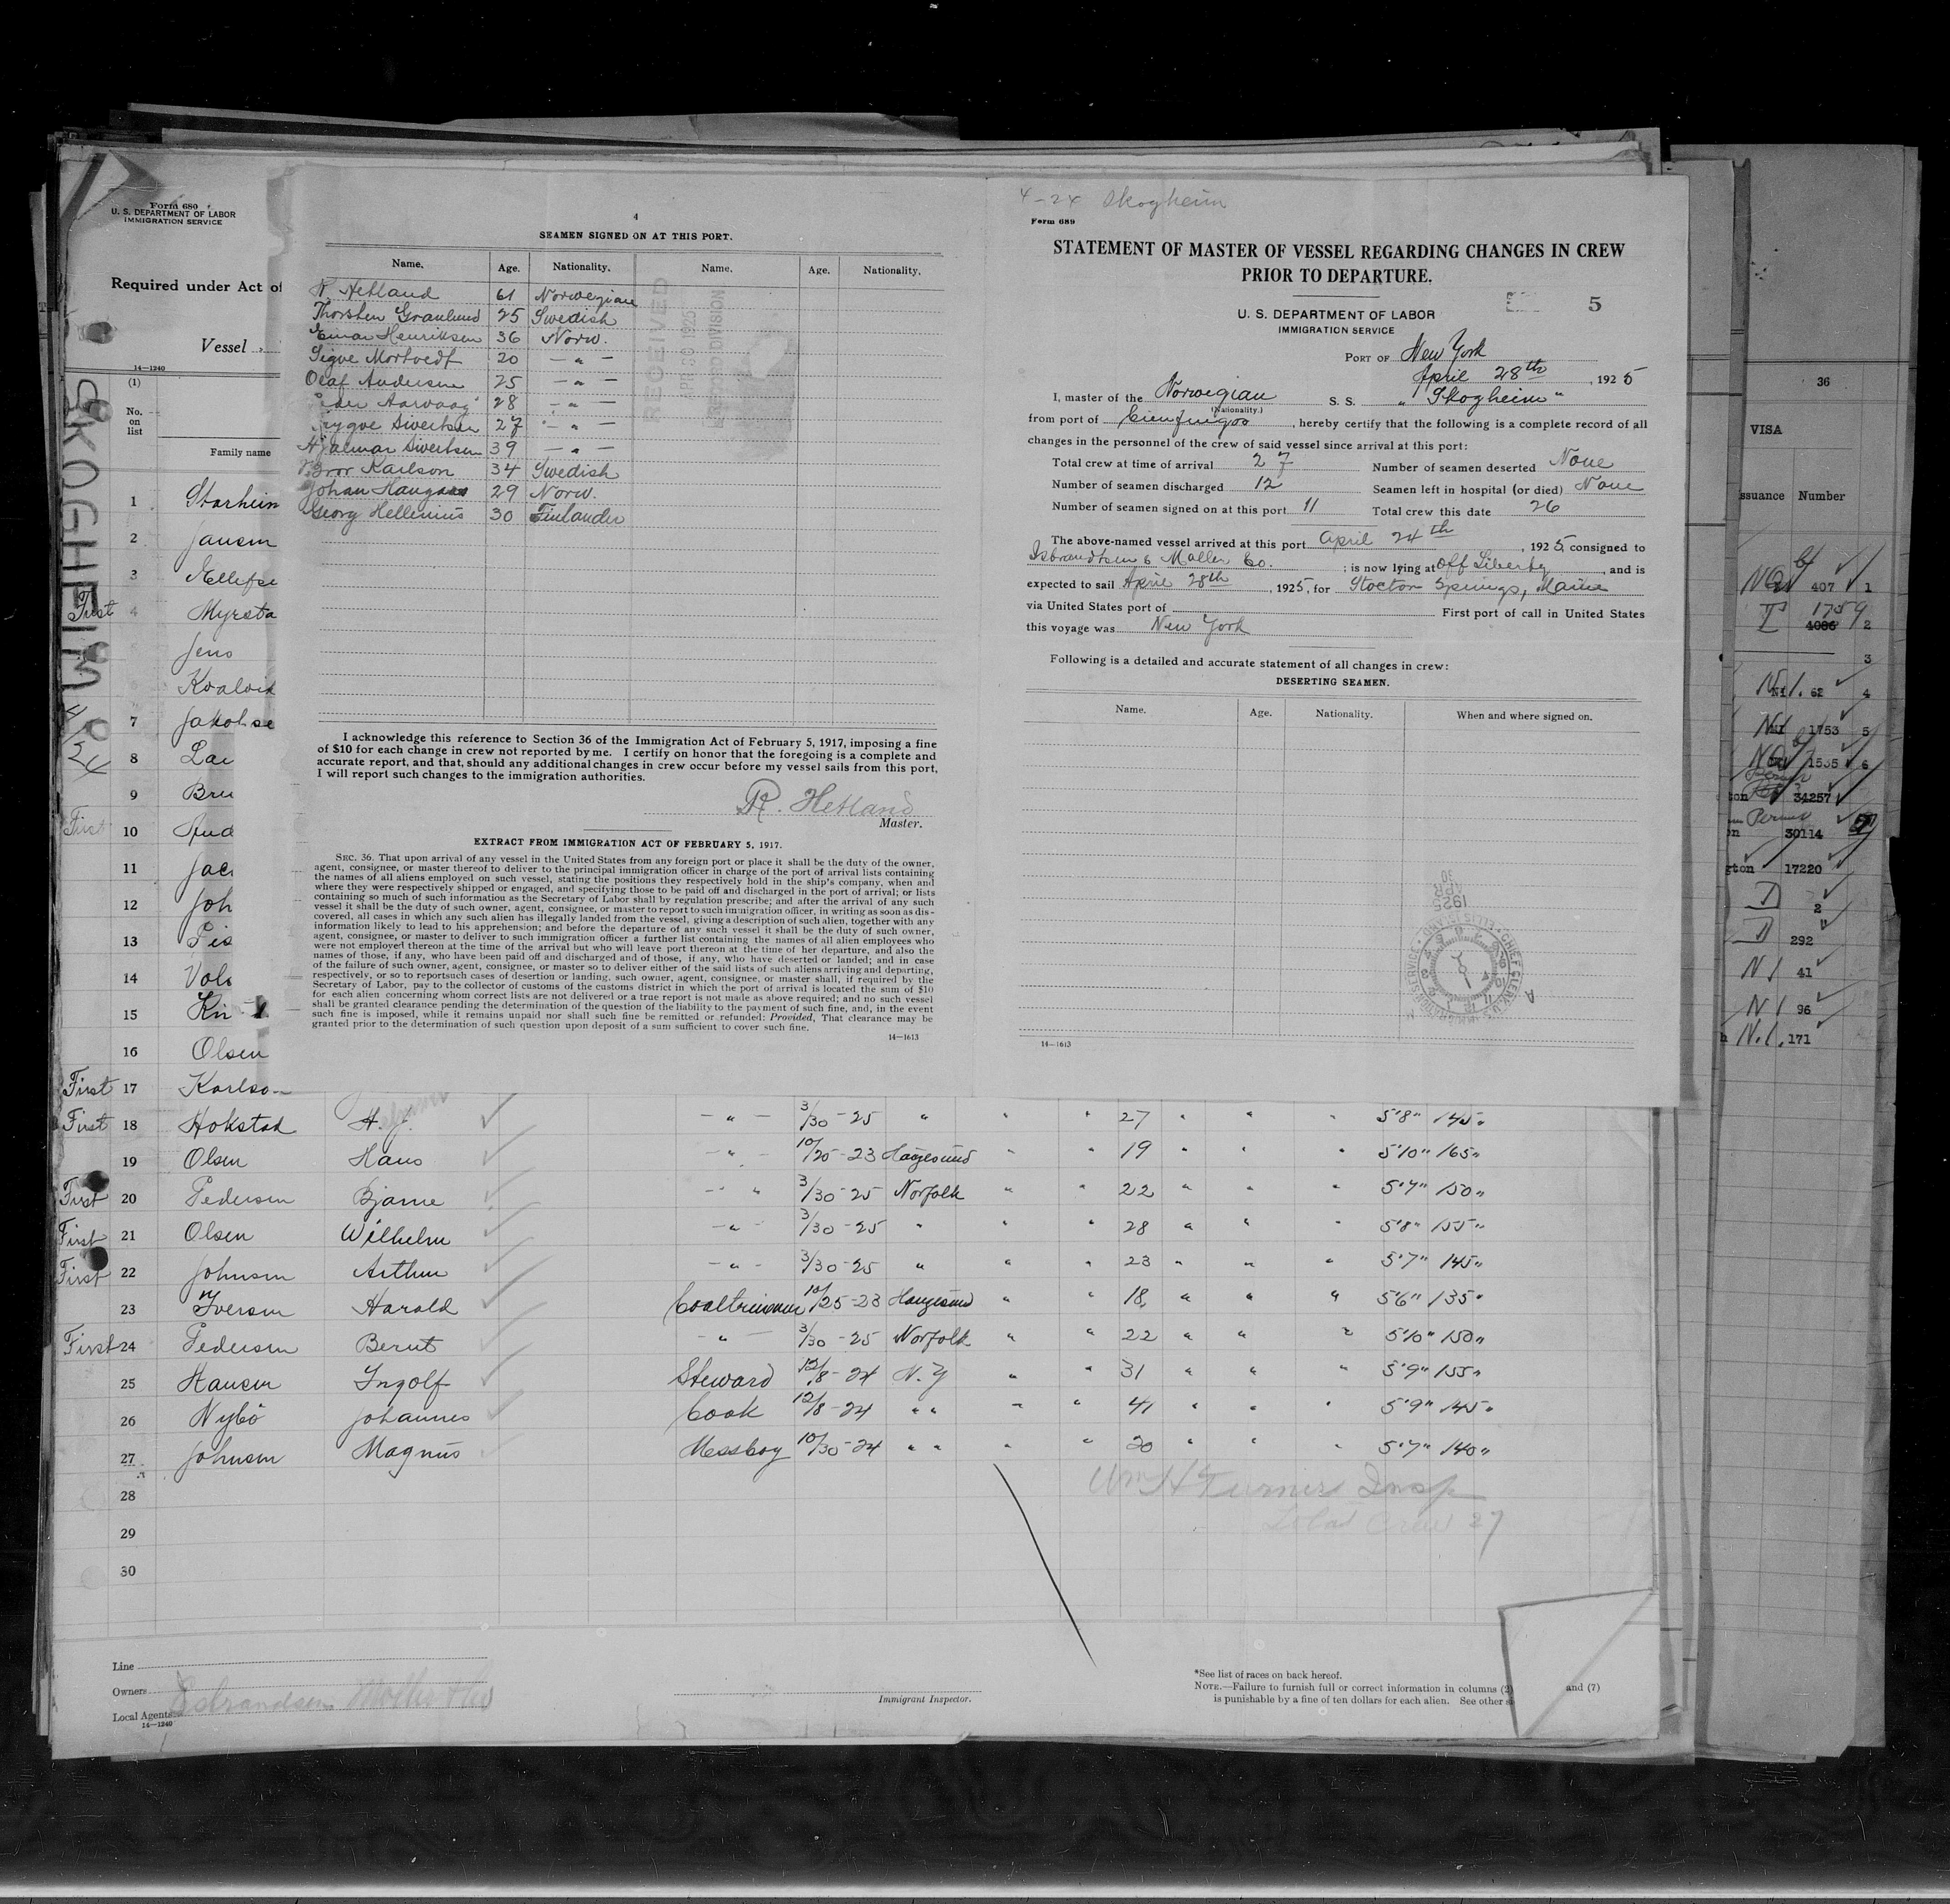 Form 680
U. S. DEPARTMENT OF LABOR
IMMIGRATION SERVICE
Required under Act of
Vessel
14—1240
(1)
No. on list
Family name
SKOGHEIM 4/24
1 Starheim
2 Jansen
3 Ellefse
First 4 Myrsta
Jens
Kvalvik
7 Jakobse
8 Lar
9 Bru
First 10 And
11 Jac
12 Joh
13
14
15 Kri
16 Olsen
First 17 Karlso
4
SEAMEN SIGNED ON AT THIS PORT.
Name. Age. Nationality. Name. Age. Nationality.
R. Hetland 61 Norwegian
Thorsten Granlund 25 Swedish
Einar Henriksen 36 Norw.
Sigve Mortvedt 20 — " —
Olaf Andersen 25 — " —
Peder Aarvaag 28 — " —
Trygve Sivertsen 27 — " —
Hjalmar Sivertsen 39 — " —
Bror Karlson 34 Swedish
Johan Haugaas 29 Norw.
Georg Hellenius 30 Finlander
RECEIVED
APR 30 1925
RECORD DIVISION
I acknowledge this reference to Section 36 of the Immigration Act of February 5, 1917, imposing a fine
of $10 for each change in crew not reported by me. I certify on honor that the foregoing is a complete and
accurate report, and that, should any additional changes in crew occur before my vessel sails from this port,
I will report such changes to the immigration authorities.
R. Hetland
Master.
EXTRACT FROM IMMIGRATION ACT OF FEBRUARY 5, 1917.
SEC. 36. That upon arrival of any vessel in the United States from any foreign port or place it shall be the duty of the owner,
agent, consignee, or master thereof to deliver to the principal immigration officer in charge of the port of arrival lists containing
the names of all aliens employed on such vessel, stating the positions they respectively hold in the ship's company, when and
where they were respectively shipped or engaged, and specifying those to be paid off and discharged in the port of arrival; or lists
containing so much of such information as the Secretary of Labor shall by regulation prescribe; and after the arrival of any such
vessel it shall be the duty of such owner, agent, consignee, or master to report to such immigration officer, in writing as soon as dis-
covered, all cases in which any such alien has illegally landed from the vessel, giving a description of such alien, together with any
information likely to lead to his apprehension; and before the departure of any such vessel it shall be the duty of such owner,
agent, consignee, or master to deliver to such immigration officer a further list containing the names of all alien employees who
were not employed thereon at the time of the arrival but who will leave port thereon at the time of her departure, and also the
names of those, if any, who have been paid off and discharged and of those, if any, who have deserted or landed; and in case
of the failure of such owner, agent, consignee, or master so to deliver either of the said lists of such aliens arriving and departing,
respectively, or so to report such cases of desertion or landing, such owner, agent, consignee, or master, shall, if required by the
Secretary of Labor, pay to the collector of customs of the customs district in which the port of arrival is located the sum of $10
for each alien concerning whom correct lists are not delivered or a true report is not made as above required; and no such vessel
shall be granted clearance pending the determination of the question of the liability to the payment of such fine, and, in the event
such fine is imposed, while it remains unpaid nor shall such fine be remitted or refunded: Provided, That clearance may be
granted prior to the determination of such question upon deposit of a sum sufficient to cover such fine.
14—1613
4-24 Skogheim
Form 689
STATEMENT OF MASTER OF VESSEL REGARDING CHANGES IN CREW
PRIOR TO DEPARTURE.
5
U. S. DEPARTMENT OF LABOR
IMMIGRATION SERVICE
PORT OF New York
April 28th, 1925
I, master of the Norwegian S. S. "Skogheim"
(Nationality.)
from port of Cienfuegos, hereby certify that the following is a complete record of all
changes in the personnel of the crew of said vessel since arrival at this port:
Total crew at time of arrival 27 Number of seamen deserted None
Number of seamen discharged 12 Seamen left in hospital (or died) None
Number of seamen signed on at this port 11 Total crew this date 26
The above-named vessel arrived at this port April 24th, 1925, consigned to
Isbrandtsen & Moller Co.; is now lying at Off Liberty, and is
expected to sail April 28th, 1925, for Stocton Springs, Maine
via United States port of First port of call in United States
this voyage was New York
Following is a detailed and accurate statement of all changes in crew:
DESERTING SEAMEN.
Name. Age. Nationality. When and where signed on.
1925
APR
30
CHIEF CLERK U. S. IMMIGRATION SERVICE ELLIS ISLAND
14—1613
36
VISA
ssuance Number
407 1
1759
4086 2
3
N.I. 62 4
NI 1753 5
1535 6
ton 34257
Permit
30114
gton 17220
D 2
D 292
N I 41
N I 96
N.I. 171
First 18 Hokstad H. J. — " — 3/30-25 " " " 27 " " " 5'8" 145"
19 Olsen Hans — " — 10/25-23 Haugesund " " 19 " " " 5'10" 165"
First 20 Pedersen Bjarne — " 3/30-25 Norfolk " " 22 " " " 5'7" 150"
First 21 Olsen Wilhelm — " — 3/30-25 " " " 28 " " " 5'8" 155"
First 22 Johnsen Arthur — " — 3/30-25 " " " 23 " " " 5'7" 145"
23 Iversen Harald Coaltrimmer 10/25-23 Haugesund " " 18 " " " 5'6" 135"
First 24 Pedersen Bernt — " — 3/30-25 Norfolk " " 22 " " " 5'10" 150"
25 Hansen Ingolf Steward 12/8-24 N. Y " " 31 " " " 5'9" 155"
26 Nybö Johannes Cook 12/8-24 " " " " 41 " " " 5'9" 145"
27 Johnsen Magnus Messboy 10/30-24 " " " " 20 " " " 5'7" 140"
28
29
30
Wm H Turner Insp
Total Crew 27
Line
Owners
Local Agents Isbrandsen Moller & Co
14—1240
Immigrant Inspector.
*See list of races on back hereof.
NOTE.—Failure to furnish full or correct information in columns (2) and (7)
is punishable by a fine of ten dollars for each alien. See other si